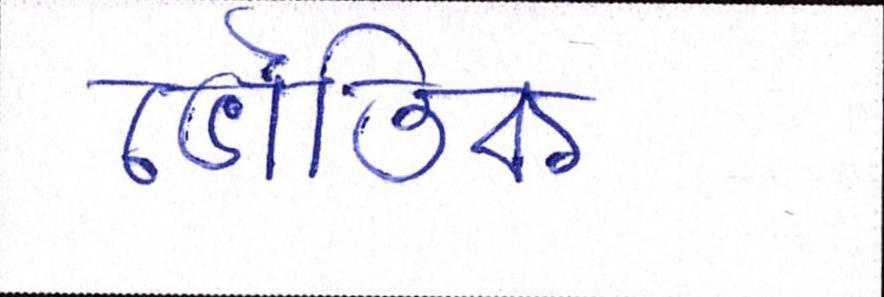 ভৌতিক